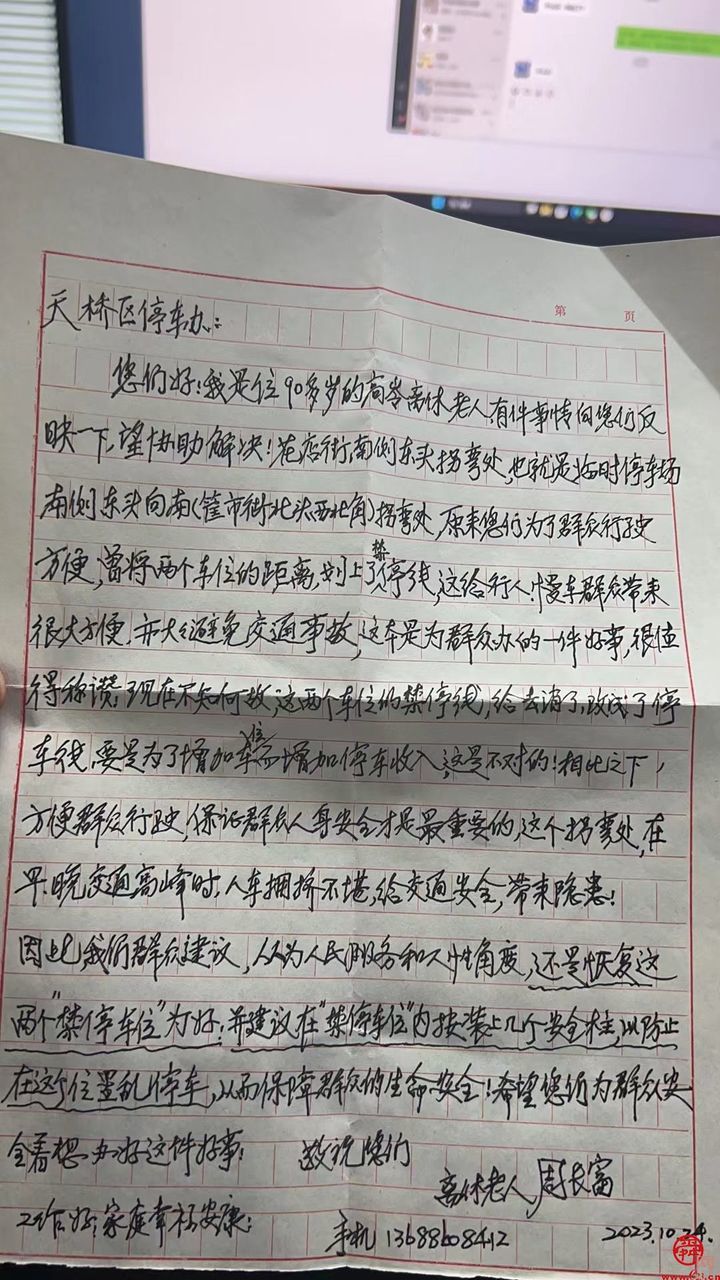 第 页
天桥区停车办:
您们好!我是位90多岁的高令离休老人,有件事情向您们反
映一下,望协助解决!花店街南侧东头拐弯处,也就是临时停车场
南侧东头向南(筐市街北头西北角)拐弯处,原来您们为了群众行驶
方便,曾将两个车位的距离,划上了禁停线,这给行人!慢车群众带来
很大方便,亦大大避免交通事故,这本是为群众办的一件好事,很值
得称讚!现在不知何故,这两个车位的禁停线,给去消了,改成了停
车线,要是为了增加车位而增加停车收入,这是不对的!相比之下,
方便群众行驶,保证群众人身安全才是最重要的,这个拐弯处,在
早.晚交通高峰时,人车拥挤不堪,给交通安全,带来隐患!
因此,我们群众建议,从为人民服务和人性角度,还是恢复这
两个"禁停车位"为好!并建议在"禁停车位"内按装上几个安全柱,以防止
在这个位置乱停车,从而保障群众的生命安全!希望您们为群众安
全着想办好这件好事! 敬祝您们
工作好!家庭幸福安康! 离休老人,周长富
手机 13688608412 2023.10.24.